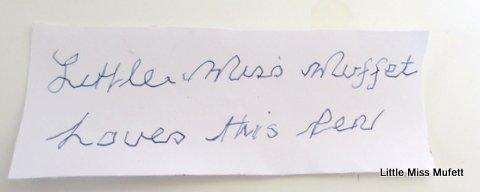 Little Miss Muffet
Loves this Pen
Little Miss Mufett